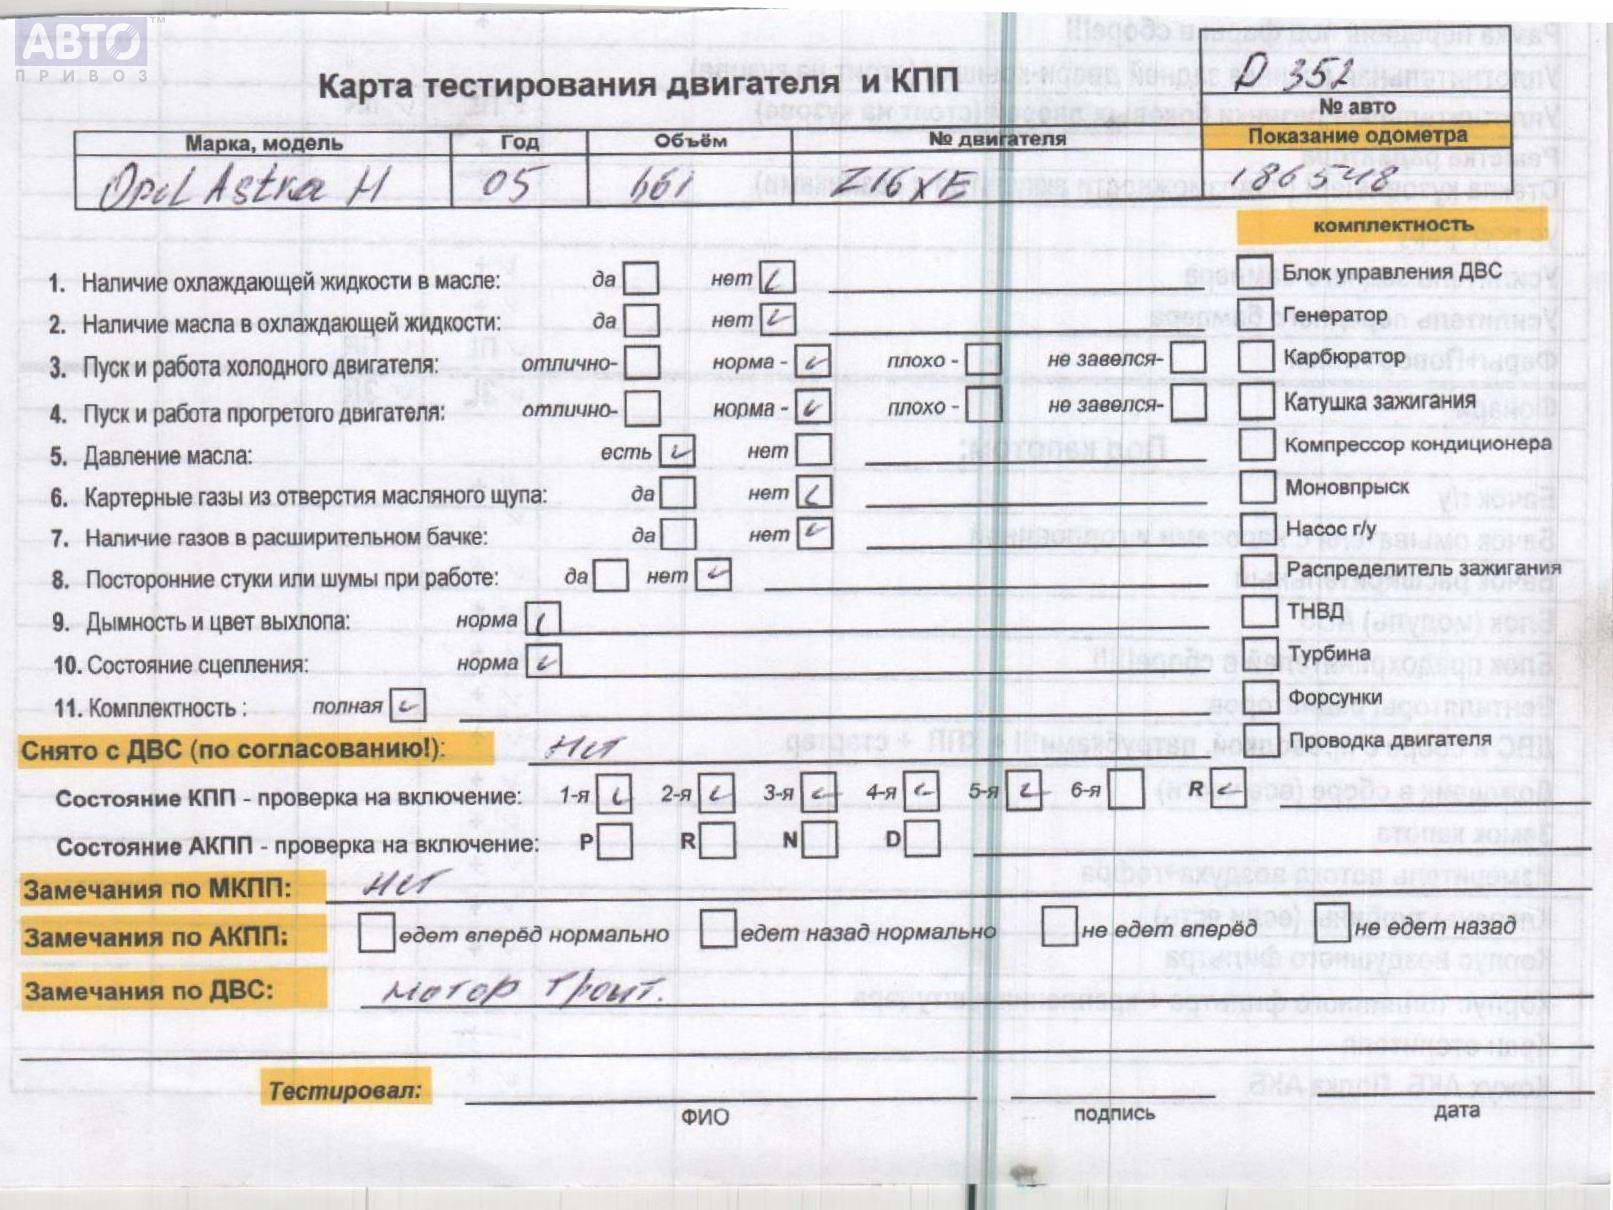 АВТО™
ПРИВОЗ
Карта тестирования двигателя и КПП
D 352
№ авто
Марка, модель Год Объём № двигателя Показание одометра
Opel Astra H 05 1.6i Z16XE 186548
комплектность
1. Наличие охлаждающей жидкости в масле: да нет Блок управления ДВС
2. Наличие масла в охлаждающей жидкости: да нет Генератор
3. Пуск и работа холодного двигателя: отлично- норма - плохо - не завелся- Карбюратор
4. Пуск и работа прогретого двигателя: отлично- норма - плохо - не завелся- Катушка зажигания
5. Давление масла: есть нет Компрессор кондиционера
6. Картерные газы из отверстия масляного щупа: да нет Моновпрыск
7. Наличие газов в расширительном бачке: да нет Насос г/у
8. Посторонние стуки или шумы при работе: да нет Распределитель зажигания
9. Дымность и цвет выхлопа: норма ТНВД
10. Состояние сцепления: норма Турбина
11. Комплектность : полная Форсунки
Снято с ДВС (по согласованию!): нет Проводка двигателя
Состояние КПП - проверка на включение: 1-я 2-я 3-я 4-я 5-я 6-я R
Состояние АКПП - проверка на включение: P R N D
Замечания по МКПП: нет
Замечания по АКПП: едет вперёд нормально едет назад нормально не едет вперёд не едет назад
Замечания по ДВС: мотор троит.
Тестировал:
ФИО подпись дата